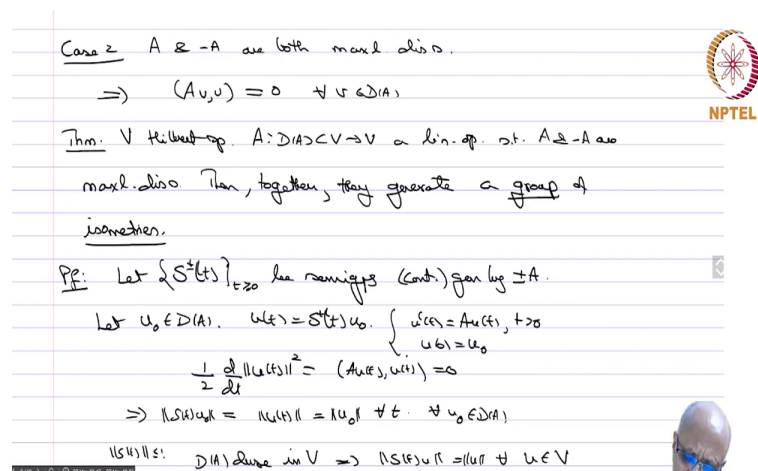 Case 2 A & -A are both maxl. diss.
⇒ (Av,v) = 0 ∀ v ∈ D(A)
NPTEL
Thm. V Hilbert sp. A: D(A) ⊂ V → V a lin. op. s.t. A & -A are
maxl. diss. Then, together, they generate a group of
isometries.
Pf: Let {S±(t)}t≥0 be semigps (cont.) gen by ±A.
Let u₀ ∈ D(A). u(t) = S⁺(t)u₀. { u'(t) = Au(t), t>0
u(0) = u₀
1/2 d/dt ||u(t)||² = (Au(t), u(t)) = 0
⇒ ||S(t)u₀|| = ||u(t)|| = ||u₀|| ∀ t. ∀ u₀ ∈ D(A)
||S(t)|| ≤ 1 D(A) dense in V ⇒ ||S(t)u|| = ||u|| ∀ u ∈ V